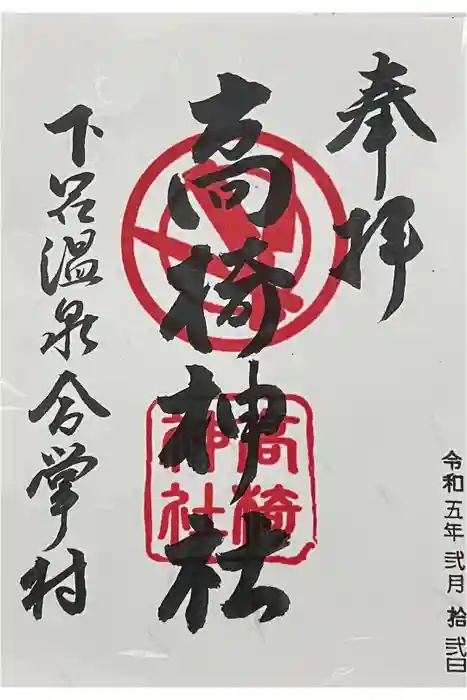 奉拝
高椅神社
高椅
神社
下呂温泉合掌村
令和五年弐月拾弐日